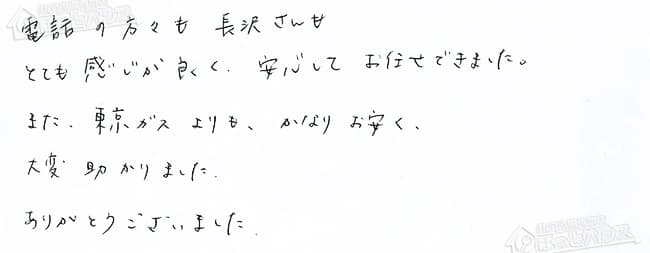 電話の方々も 長沢さんも
とても感じが良く、安心して お任せできました。
また、東京ガスよりも、かなりお安く、
大変 助かりました.
ありがとうございました.